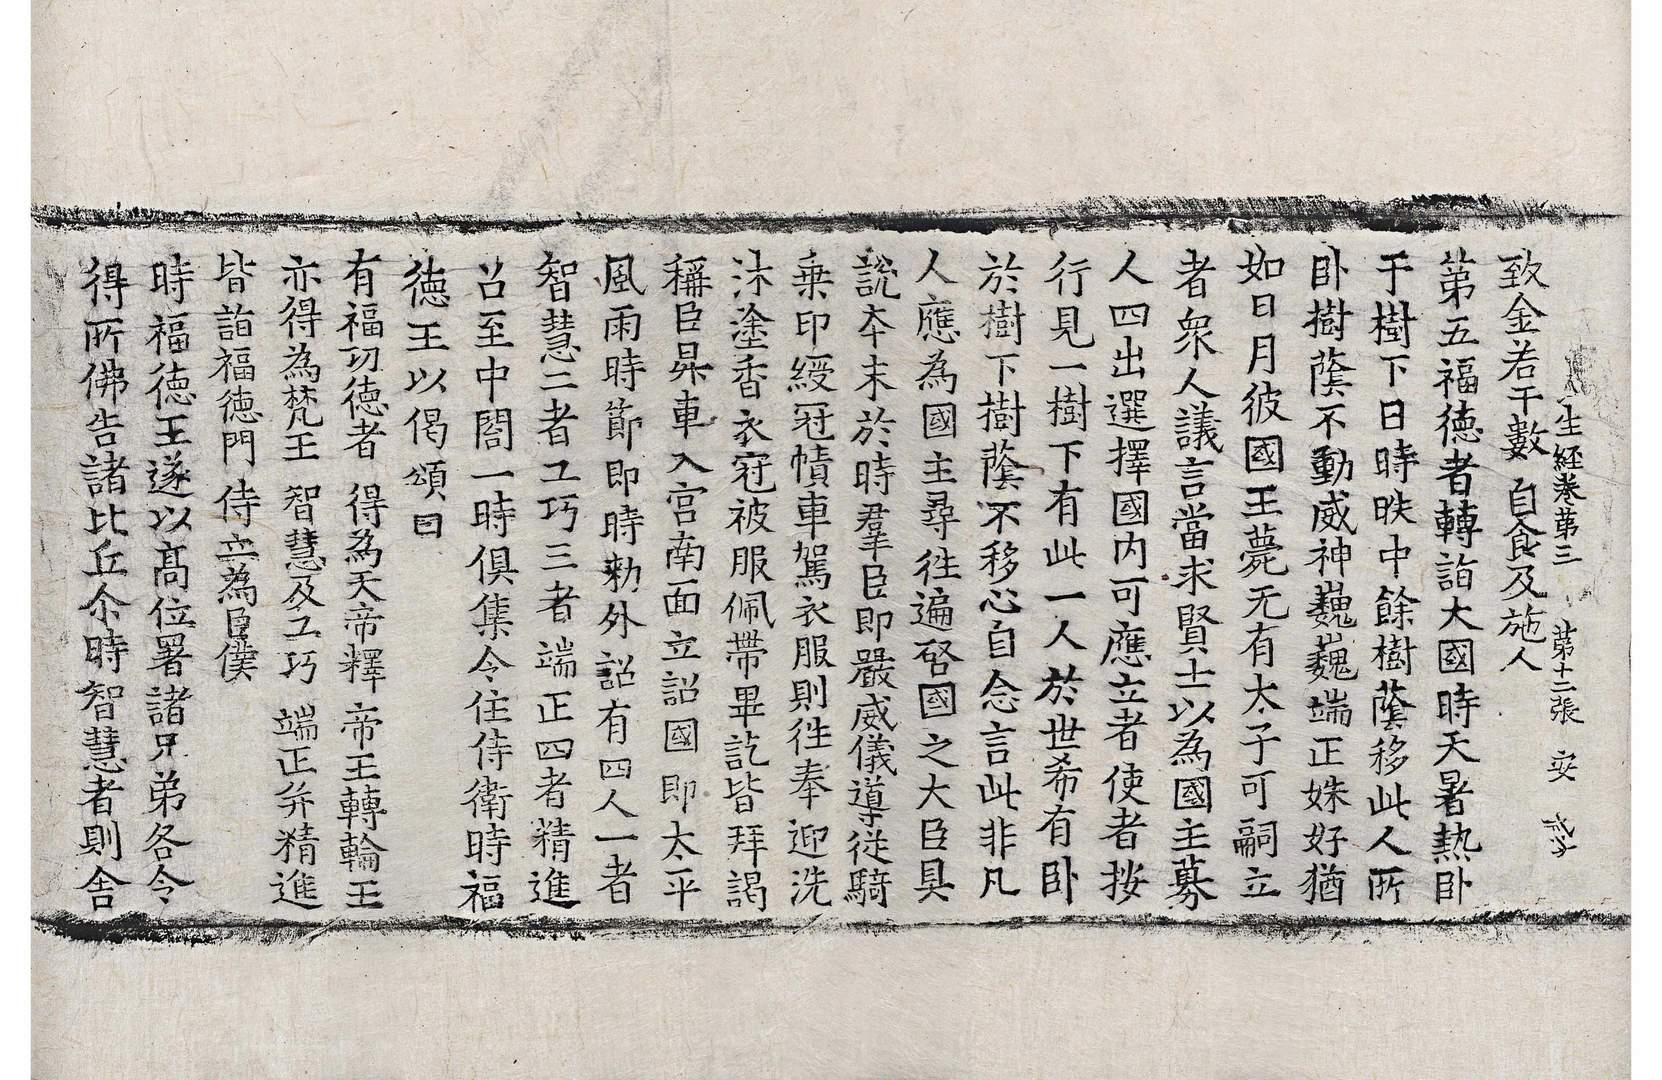 生經卷第三 第十二張 安
致金若干數 自食及施人
第五福德者轉詣大國時天暑熱卧
于樹下日時昳中餘樹蔭移此人所
卧樹蔭不動威神巍巍端正姝好猶
如日月彼國王薨无有太子可嗣立
者衆人議言當求賢士以為國主募
人四出選擇國內可應立者使者按
行見一樹下有此一人於世希有卧
於樹下樹蔭不移心自念言此非凡
人應為國主尋徃遍啓國之大臣具
說本末於時羣臣即嚴威儀導從騎
乗印綬冠幘車駕衣服則徃奉迎洗
沐塗香衣冠被服佩帶畢訖皆拜謁
稱臣昇車入宮南面立詔國即太平
風雨時節即時勑外詔有四人一者
智慧二者工巧三者端正四者精進
召至中閤一時俱集令住侍衛時福
德王以偈頌曰
有福功德者 得為天帝釋 帝王轉輪王
亦得為梵王 智慧及工巧 端正并精進
皆詣福德門 侍立為臣僕
時福德王遂以髙位署諸兄弟各令
得所佛告諸比丘尒時智慧者則舍